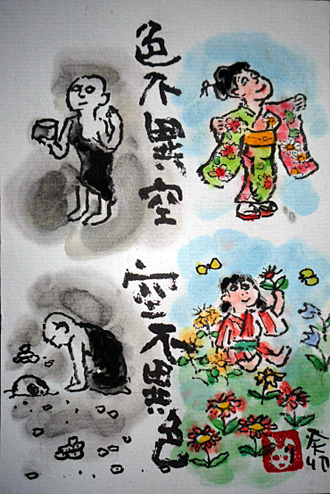 色不異空
空不異色